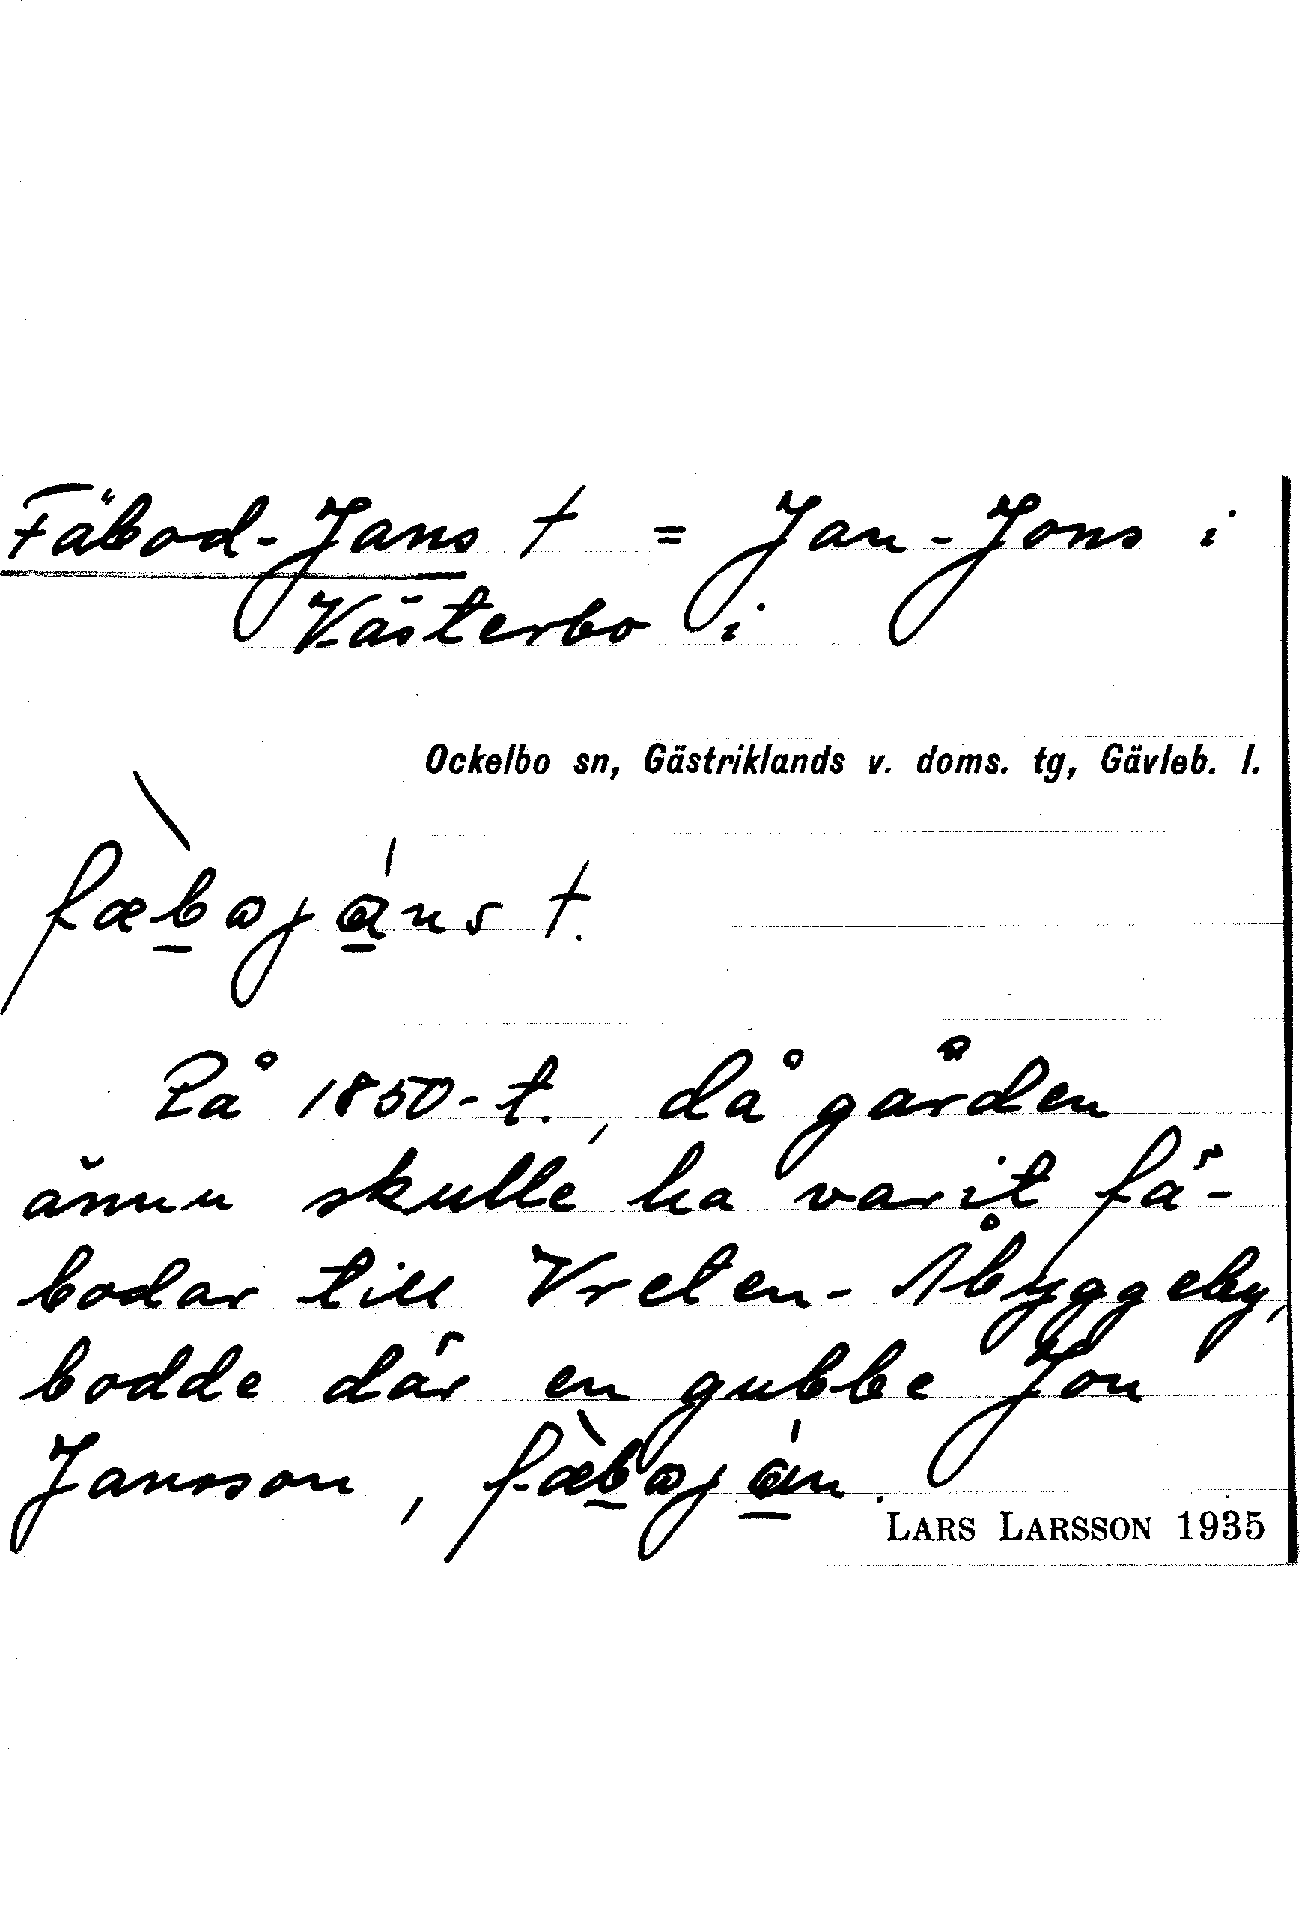 Fäbod-Jans † = Jan-Jons i
Västerbo i
Ockelbo sn, Gästriklands v. doms. tg, Gävleb. l.
fæ̀bɷjɑ́ns †.
På 1850-t., då gården
ännu skulle ha varit fä-
bodar till Vreten-Åbyggeby,
bodde där en gubbe Jon
Jansson, fæ̀bɷjɑ́n.
LARS LARSSON 1935